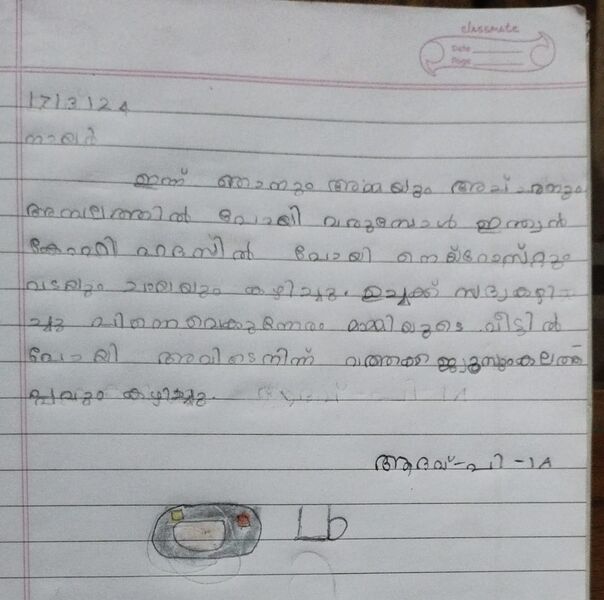 classmate
Date
Page
17/3/24
ഞായർ
ഇന്ന് ഞാനും അമ്മയും അച്ഛനും
അമ്പലത്തിൽ പോയി വരുമ്പോൾ ഇന്ത്യൻ
കോഫി ഹൗസിൽ പോയി നെയ്റോസ്റ്റും
വടയും ചായയും കഴിച്ചു. ഉച്ചക്ക് സദ്യകഴി-
ച്ചു പിന്നെ വൈകുന്നേരം മാമിയുടെ വീട്ടിൽ
പോയി അവിടെനിന്ന് വത്തക്ക ജ്യൂസും
കഴിച്ചു.
ആദവ് - പി - 1A
Lb